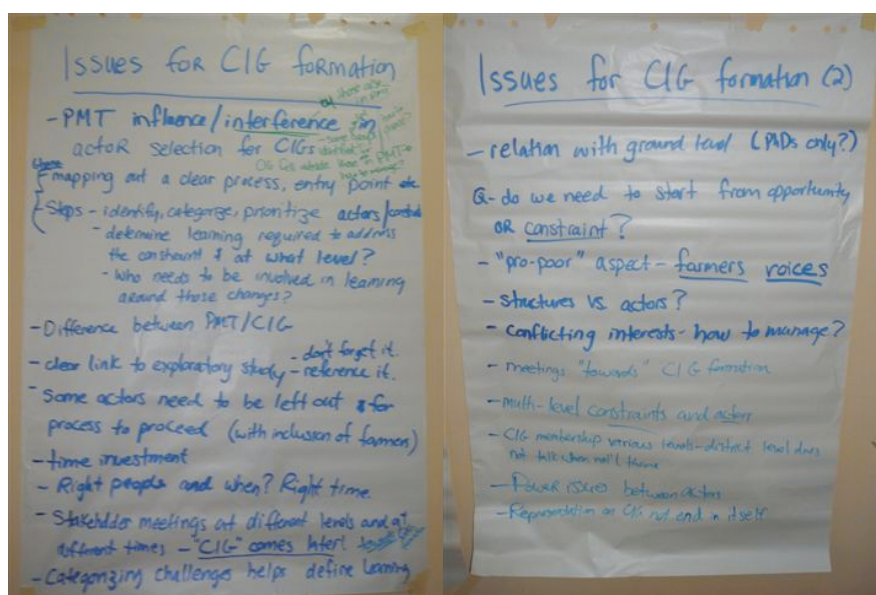 Issues for CIG formation
- PMT influence/interference in
actor selection for CIGs
mapping out a clear process, entry point etc
Steps - identify, categorize, prioritize actors/
- determine learning required to address
the constraint & at what level?
- who needs to be involved in learning
around those changes?
- Difference between PMT/CIG
- clear link to exploratory study
- don't forget it.
- reference it.
- Some actors need to be left out for
process to proceed (with inclusion of farmers)
- time investment
- Right people and when? Right time.
- Stakeholder meetings at different levels and at
different times - "CIG" comes later!
- Categorizing challenges helps define learning
Issues for CIG formation (2)
- relation with ground level (PADs only?)
Q - do we need to start from opportunity
OR constraint?
- "pro-poor" aspect - farmers voices
- structures vs actors?
- conflicting interests - how to manage?
- meetings "towards" CIG formation
- multi-level constraints and actors
- CIG membership various levels - district level does
not talk when nat'l there
- Power issues between actors
- Representation on CIG not end in itself